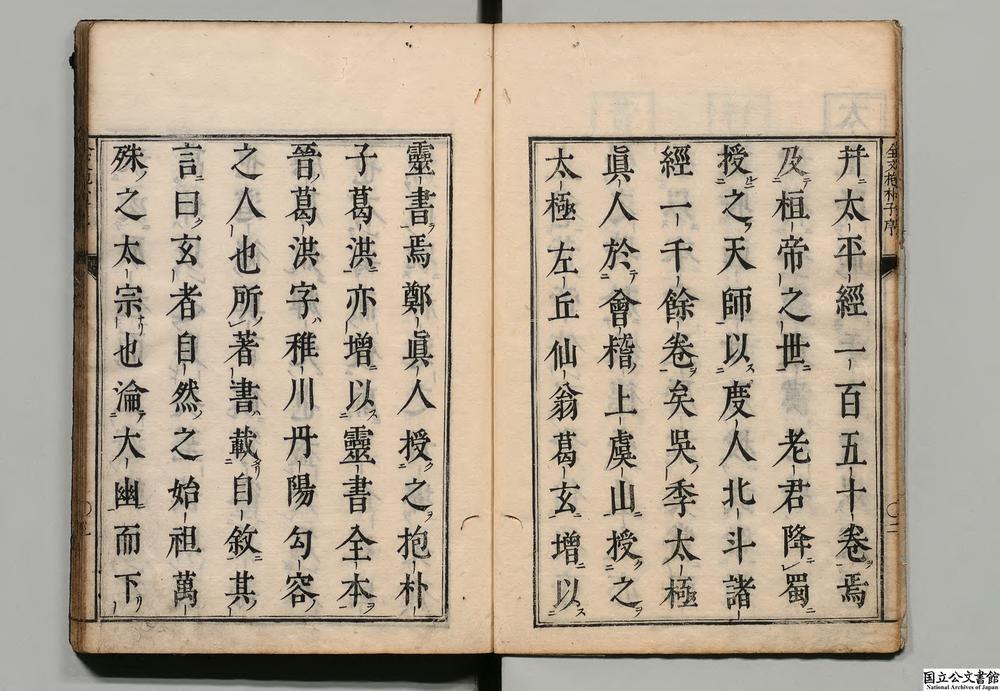 幷太平經一百五十卷焉
及桓帝之世 老君降蜀
授之天師以度人北斗諸
經一千餘卷矣吳季太極
眞人於會稽上虞山授之
太極左丘仙翁葛玄增以
靈書焉鄭眞人授之抱朴
子葛洪亦增以靈書全本
晉葛洪字稚川丹陽勾容
之人也所著書載自敘其
言曰玄者自然之始祖萬
殊之太宗也淪大幽而下
国立公文書館
National Archives of Japan